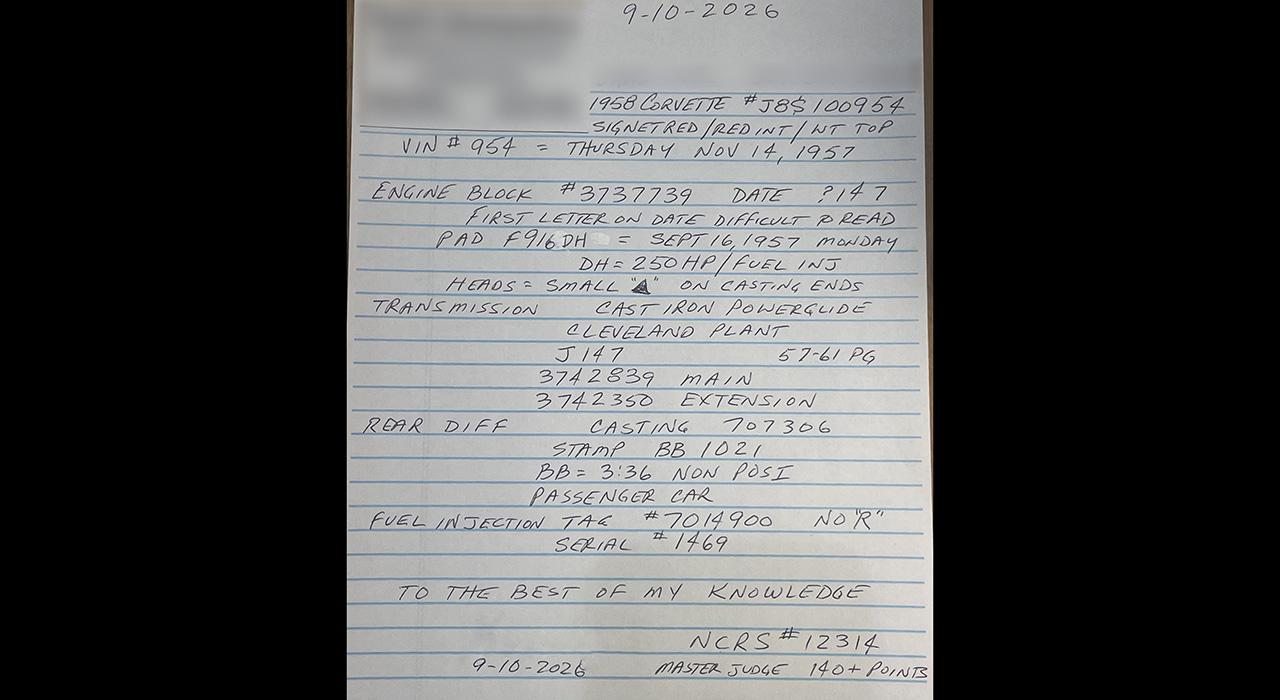 9-10-2026
1958 CORVETTE #J8S100954
SIGNET RED/RED INT/WT TOP
VIN # 954 = THURSDAY NOV 14, 1957
ENGINE BLOCK #3737739 DATE ?147
FIRST LETTER ON DATE DIFFICULT TO READ
PAD F916DH = SEPT 16, 1957 MONDAY
DH = 250HP/FUEL INJ
HEADS = SMALL "▲" ON CASTING ENDS
TRANSMISSION CAST IRON POWERGLIDE
CLEVELAND PLANT
J147 57-61 PG
3742839 MAIN
3742350 EXTENSION
REAR DIFF CASTING 707306
STAMP BB 1021
BB = 3:36 NON POSI
PASSENGER CAR
FUEL INJECTION TAG #7014900 NO "R"
SERIAL #1469
TO THE BEST OF MY KNOWLEDGE
NCRS #12314
9-10-2026 MASTER JUDGE 140+ POINTS